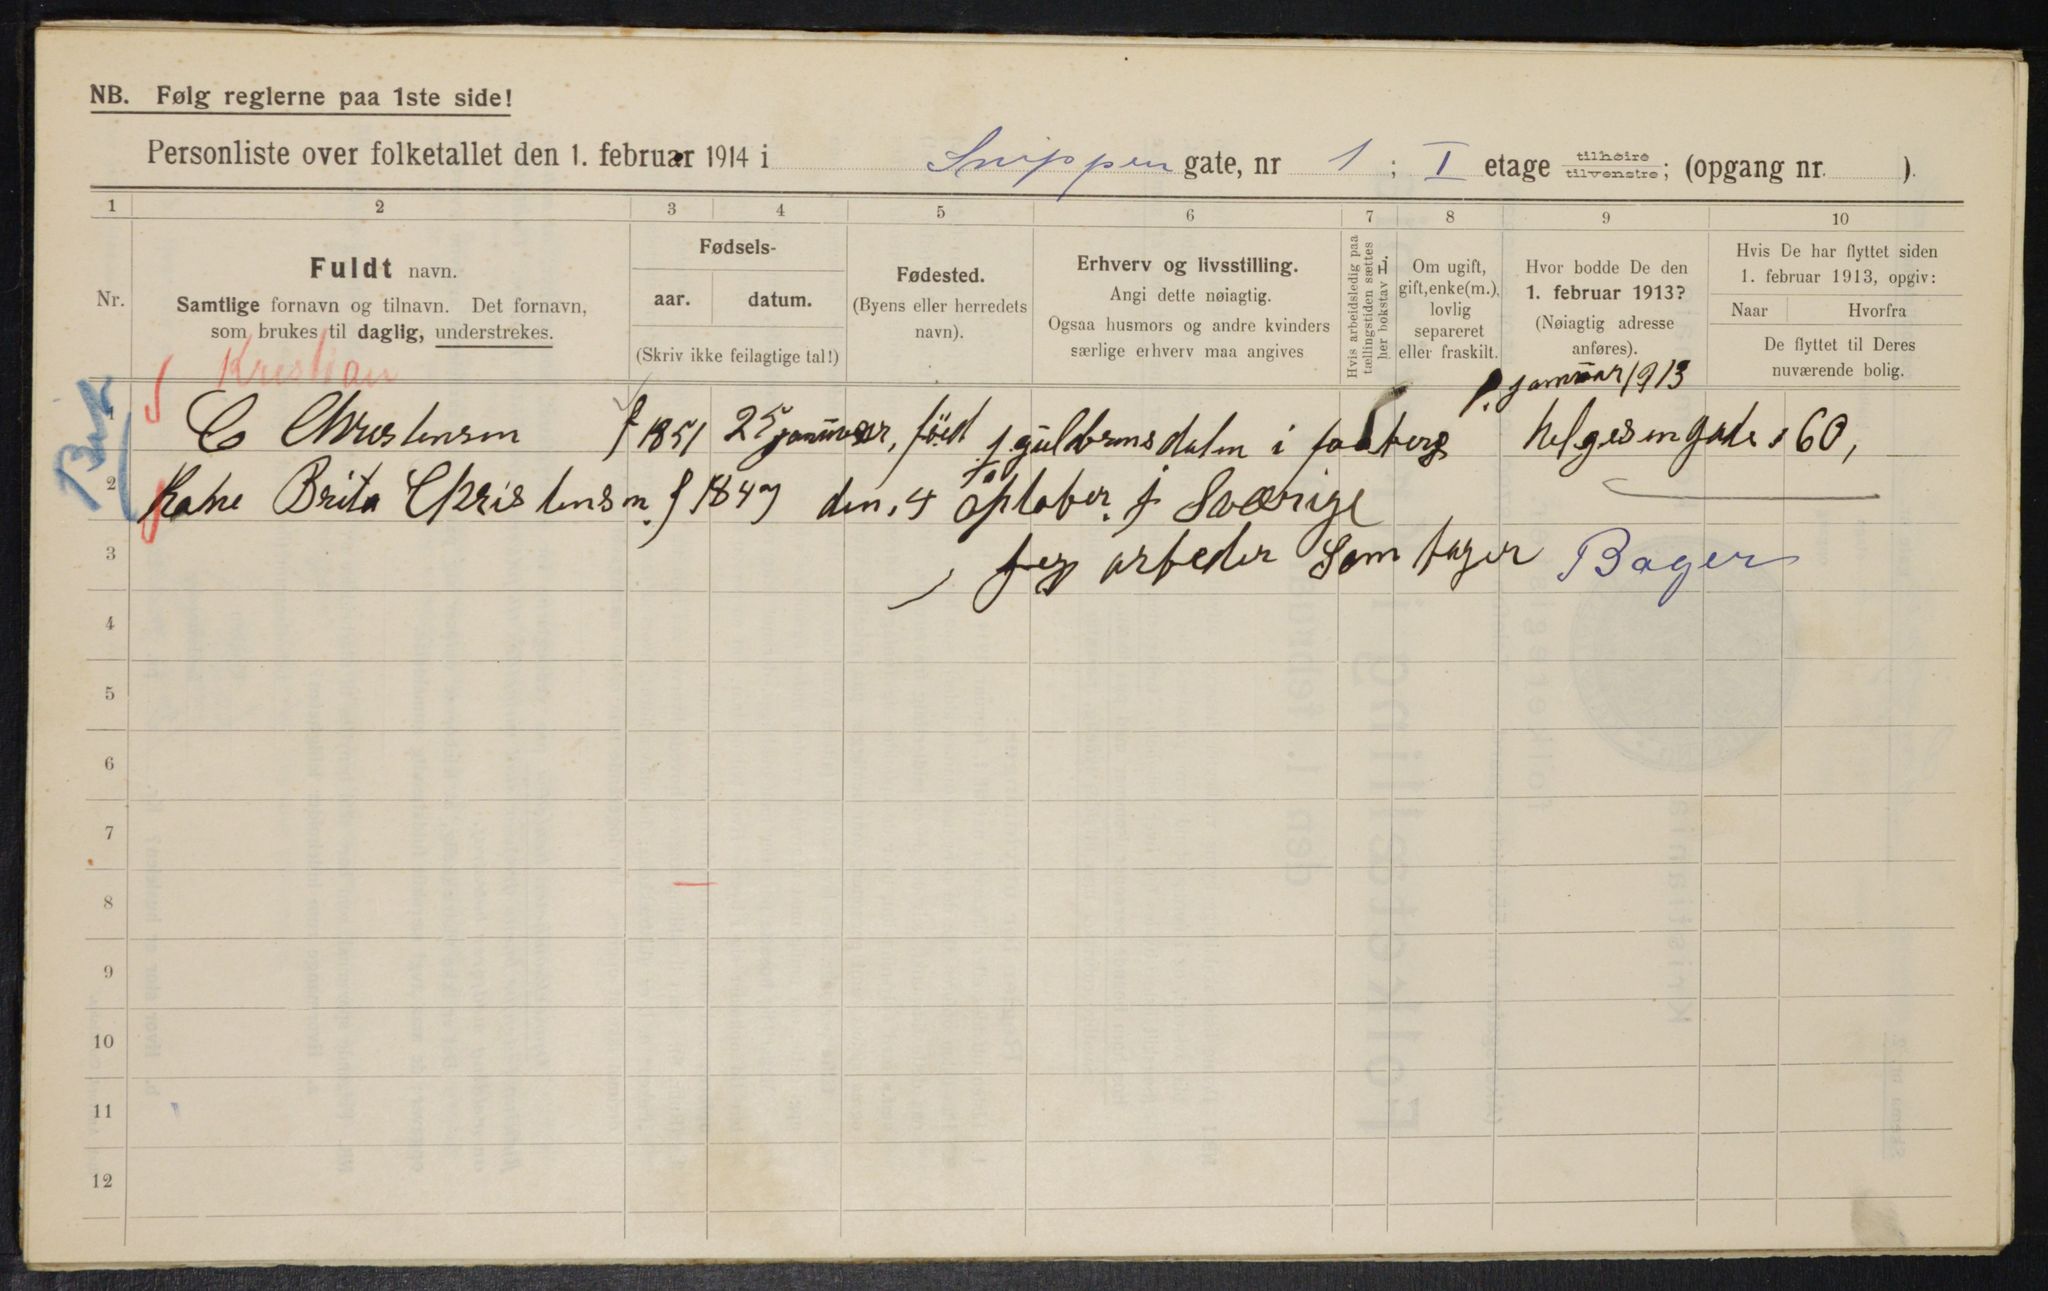 NB. Følg reglerne paa 1ste side!
Personliste over folketallet den 1. februar 1914 i Snippen gate, nr 1; I etage tilhøire tilvenstre; (opgang nr. ).
1 2 3 4 5 6 7 8 9 10
Nr.
Fuldt navn.
Samtlige fornavn og tilnavn. Det fornavn,
som brukes til daglig, understrekes.
Fødsels-
aar. datum.
(Skriv ikke feilagtige tal!)
Fødested.
(Byens eller herredets
navn).
Erhverv og livsstilling.
Angi dette nøiagtig.
Ogsaa husmors og andre kvinders
særlige erhverv maa angives
Hvis arbeidsledig paa
tællingstiden sættes
her bokstav H.
Om ugift,
gift, enke(m.),
lovlig
separeret
eller fraskilt.
Hvor bodde De den
1. februar 1913?
(Nøiagtig adresse
anføres).
Hvis De har flyttet siden
1. februar 1913, opgiv:
Naar Hvorfra
De flyttet til Deres
nuværende bolig.
Kristian
januar 1913
1 C Christensen f 1851 25 januar, föed i gulbransdalen i faaberg helgesengade 60,
2 Kone Brita Christensen f 1847 den 4 oktober i Sværige
3 jeg arbeder som bager Bager
4
5
6
7
8
9
10
11
12